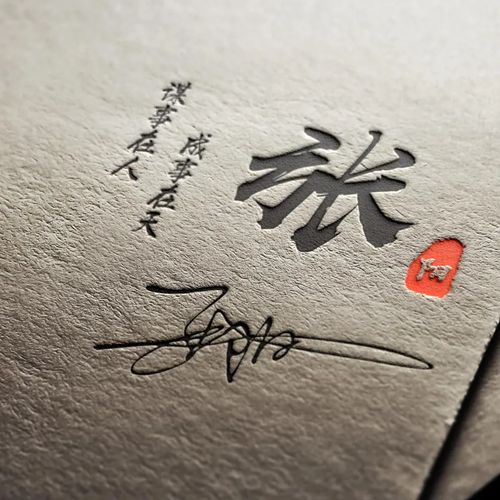 谋事在人
成事在天
张
阳